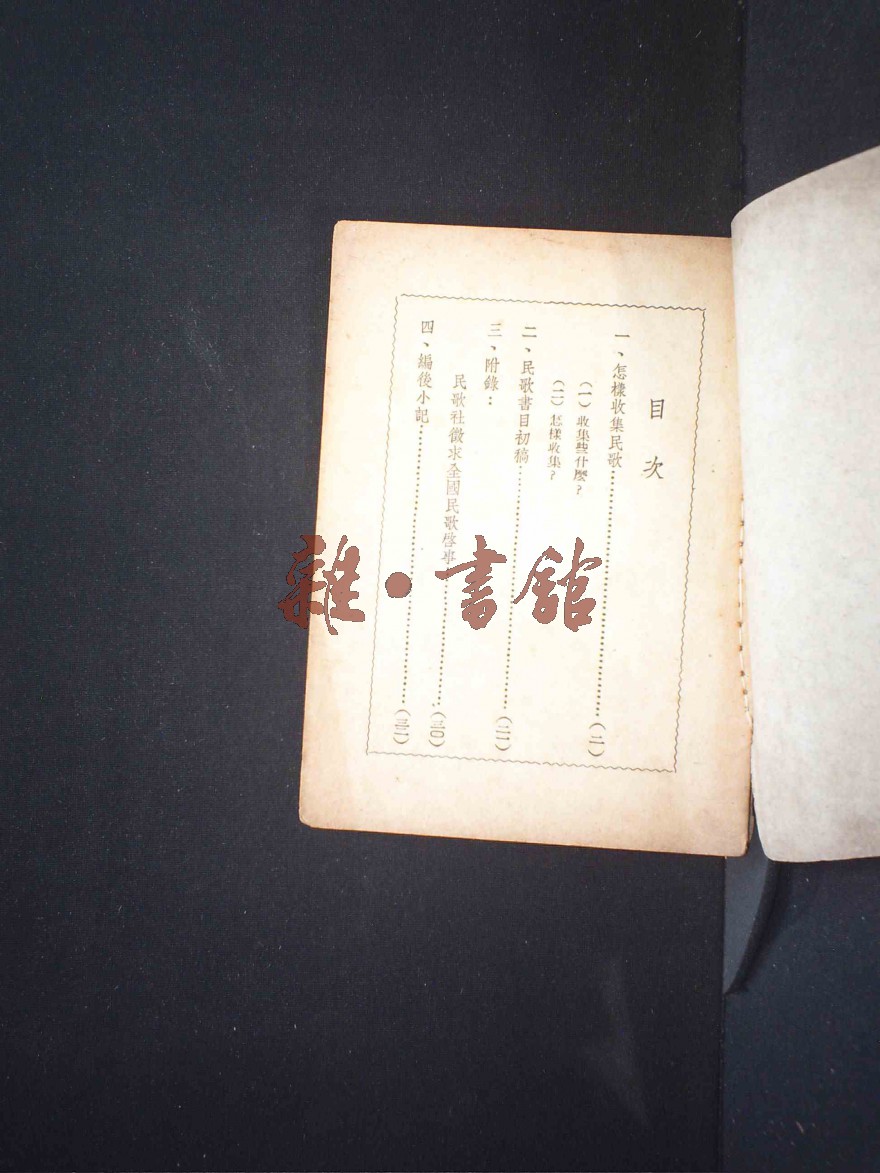 目次
一、怎樣收集民歌……(二)
(一)收集些什麼?
(二)怎樣收集?
二、民歌書目初稿……(二一)
三、附錄:
民歌社徵求全國民歌啓事……(三〇)
四、編後小記……(三二)
雜·書館